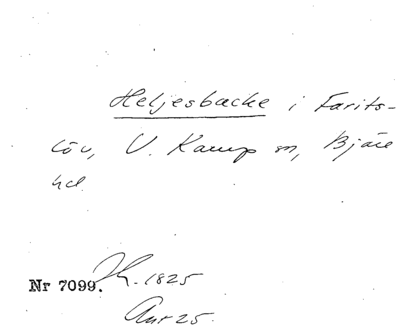 Heljesbacke i Farits-
löv, V. Karup sn, Bjäre
hd.
Nr 7099. 1825
25.